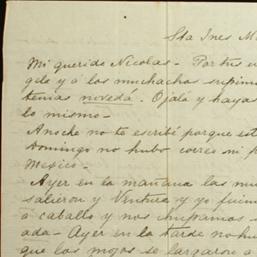 Sta Ines M
Mi querido Nicolas - Por tus
gdo y á los muchachos supim
tenias novedá. Ojalá y hayas
lo mismo -
Anoche no te escribí porque est
Domingo no hubo correo ni p
Mexico -
Ayer en la mañana las mu
salieron y Ventura y yo fuim
á caballo y nos
ada - Ayer en la tarde no hu
que los mozos se largaron a